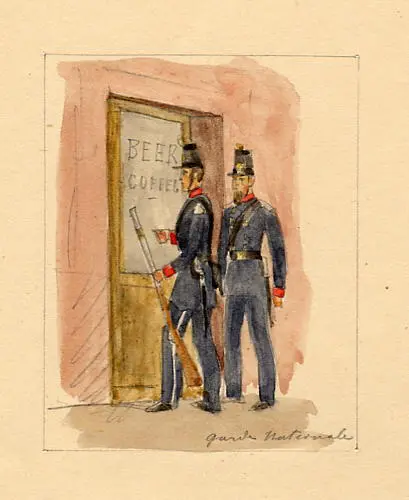 BEER
COFFEE
garde Nationale